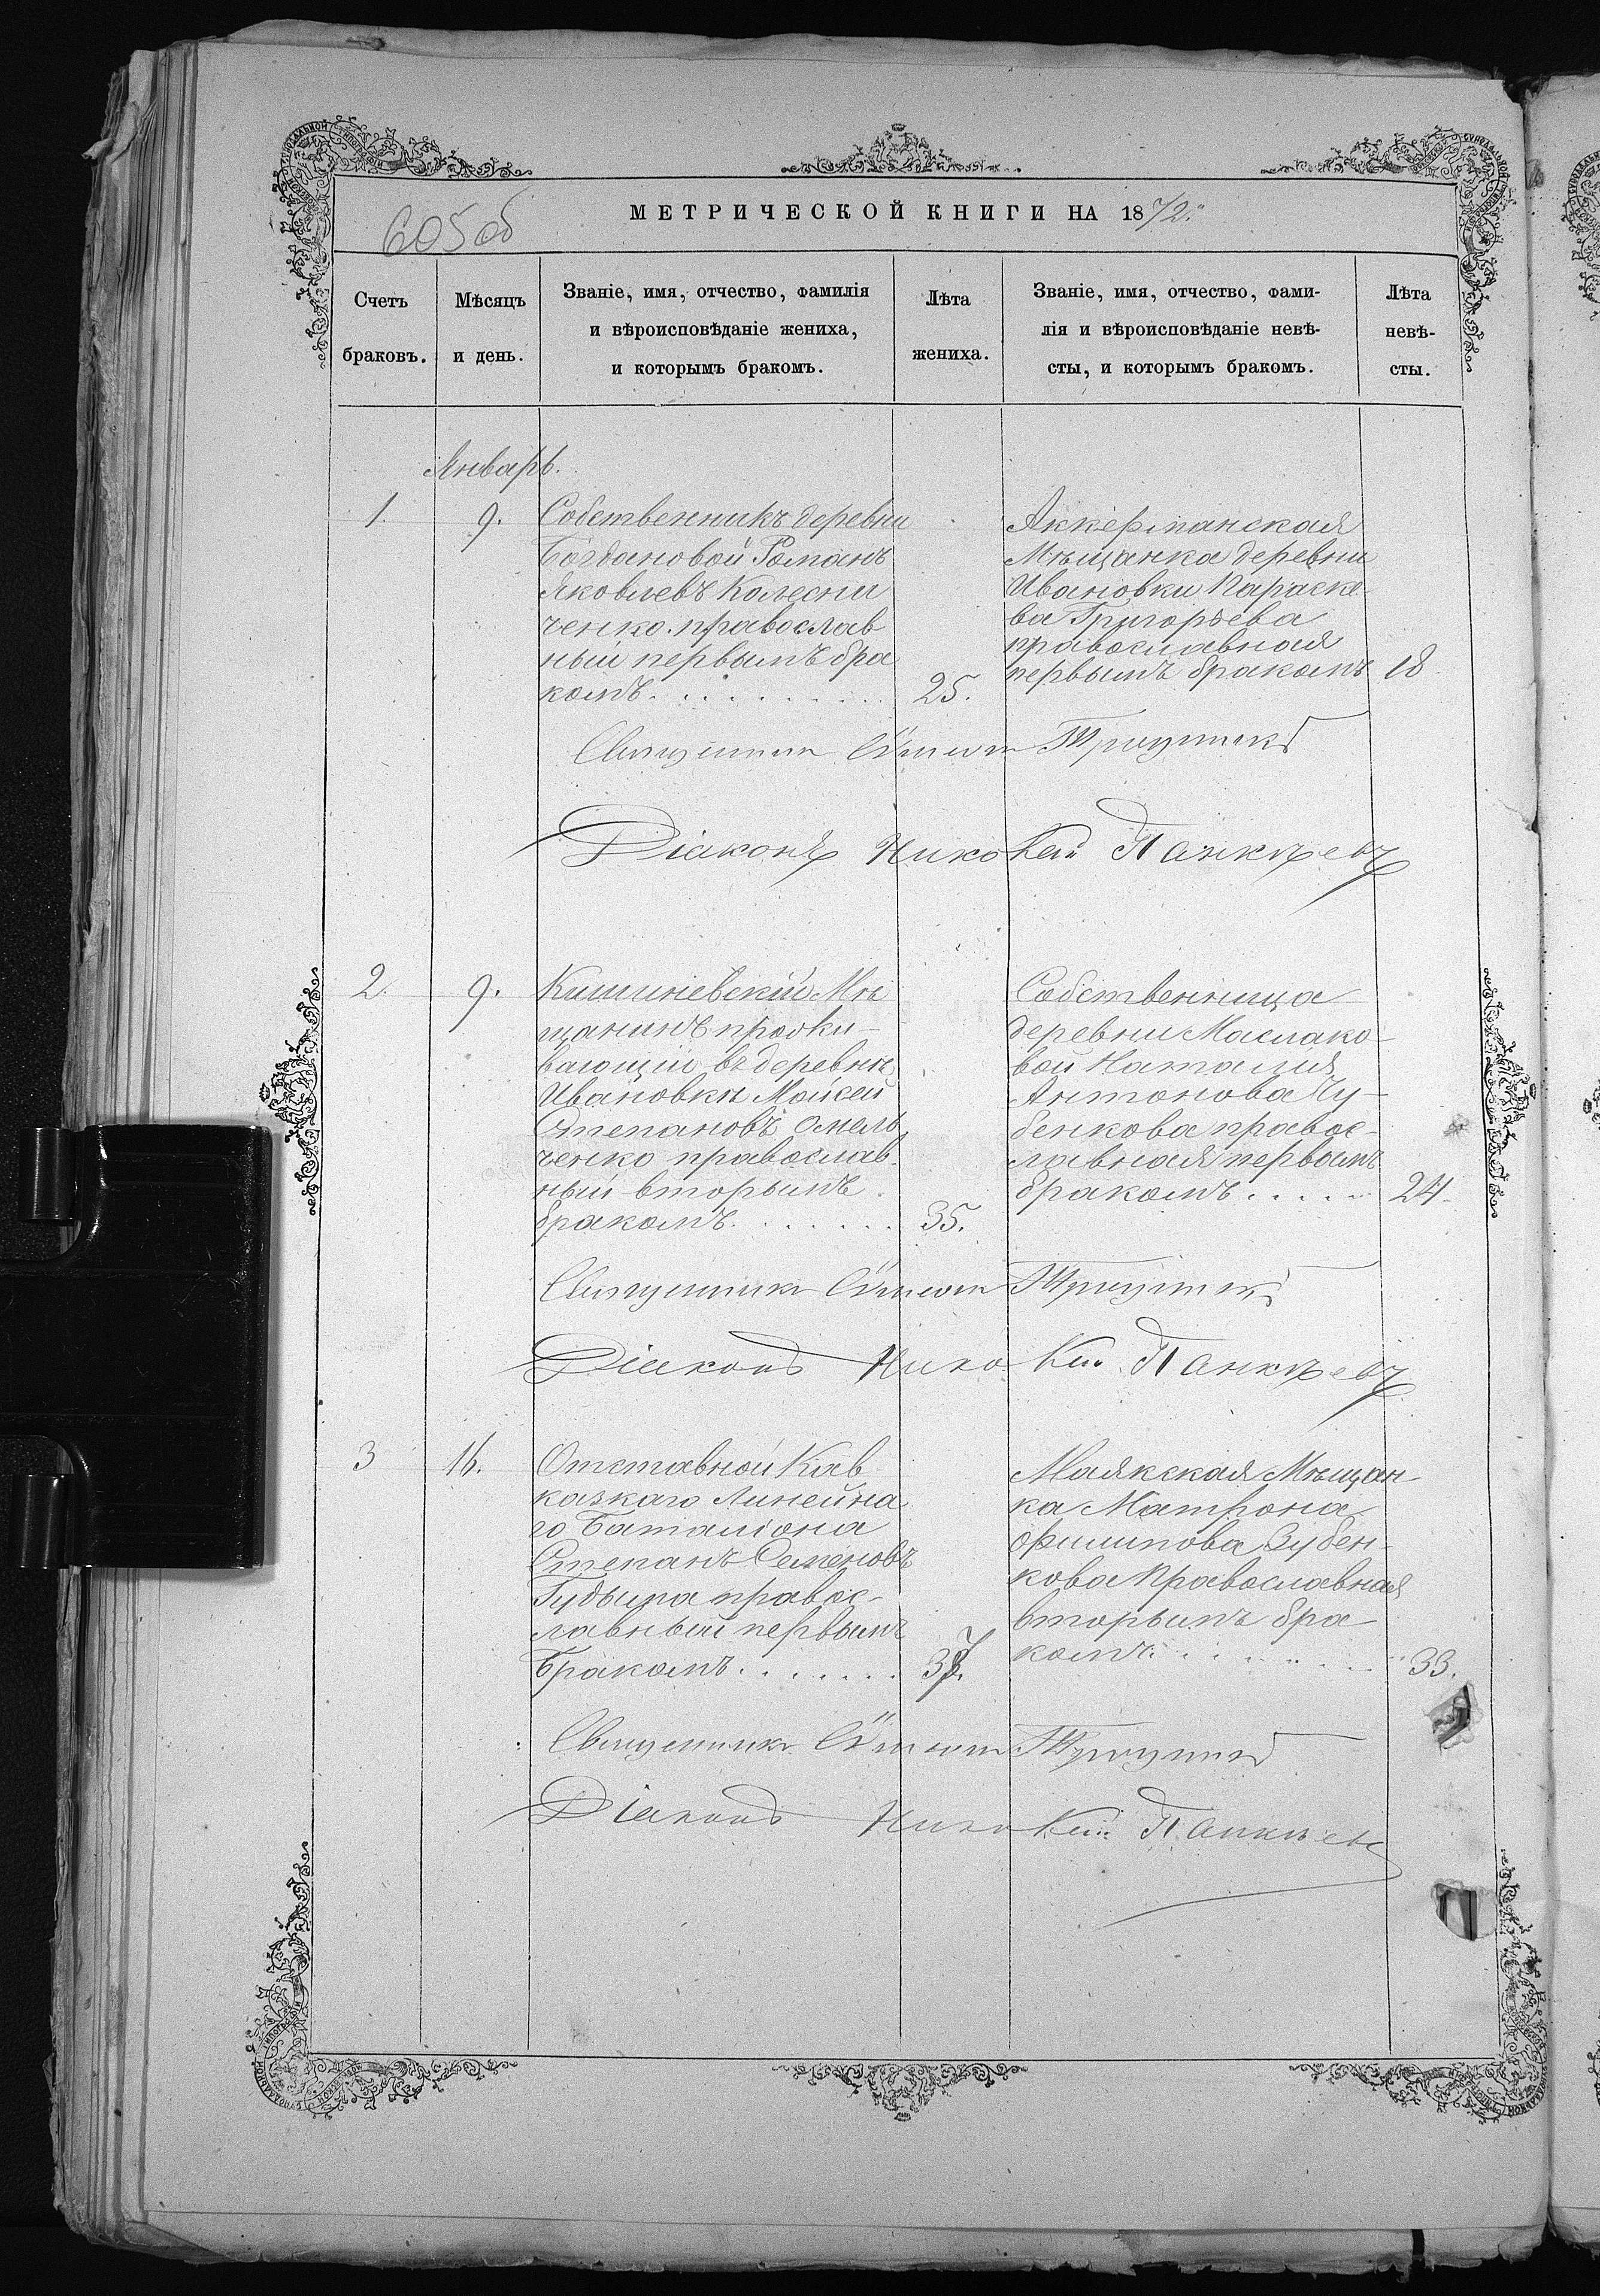 МЕТРИЧЕСКОЙ КНИГИ НА 1872.
605об
Счетъ браковъ.
Мѣсяцъ и день.
Званіе, имя, отчество, фамилія
и вѣроисповѣданіе жениха,
и которымъ бракомъ.
Лѣта жениха.
Званіе, имя, отчество, фами-
лія и вѣроисповѣданіе невѣ-
сты, и которымъ бракомъ.
Лѣта
невѣ-
сты.
Январь.
1. 9.
Собственникъ деревни
Богдановой Романъ
Яковлевъ Колесни
ченко православ
ный первымъ бра
комъ. . . . . . . . . 25.
Аккерманская
Мѣщанка деревни
Ивановки Параске-
ва Григорьева
православная
первымъ бракомъ 18
Священникъ
Діаконъ Николай
2. 9.
Кишиневскій Мѣ
щанинъ прожи-
вающій въ деревнѣ
Ивановкѣ Моисей
Степановъ Омель
ченко православ-
ный вторымъ
бракомъ. . . . . . . 35.
Собственница
деревни Маслако-
вой Наталия
Антонова Чу-
бенкова правос-
лавная первымъ
бракомъ . . . . . 24.
Священникъ
Діаконъ Николай
3 16.
Отставной Кав
казкаго Линейна
го Баталіона
Степанъ Семеновъ
Гудыма правос-
лавный первымъ
Бракомъ. . . . . . . 37.
Маякская Мѣщан-
ка Матрона
Филипова Зубен-
кова Православная
вторымъ бра
комъ. . . . . . . . 33.
Священникъ
Діаконъ Николай